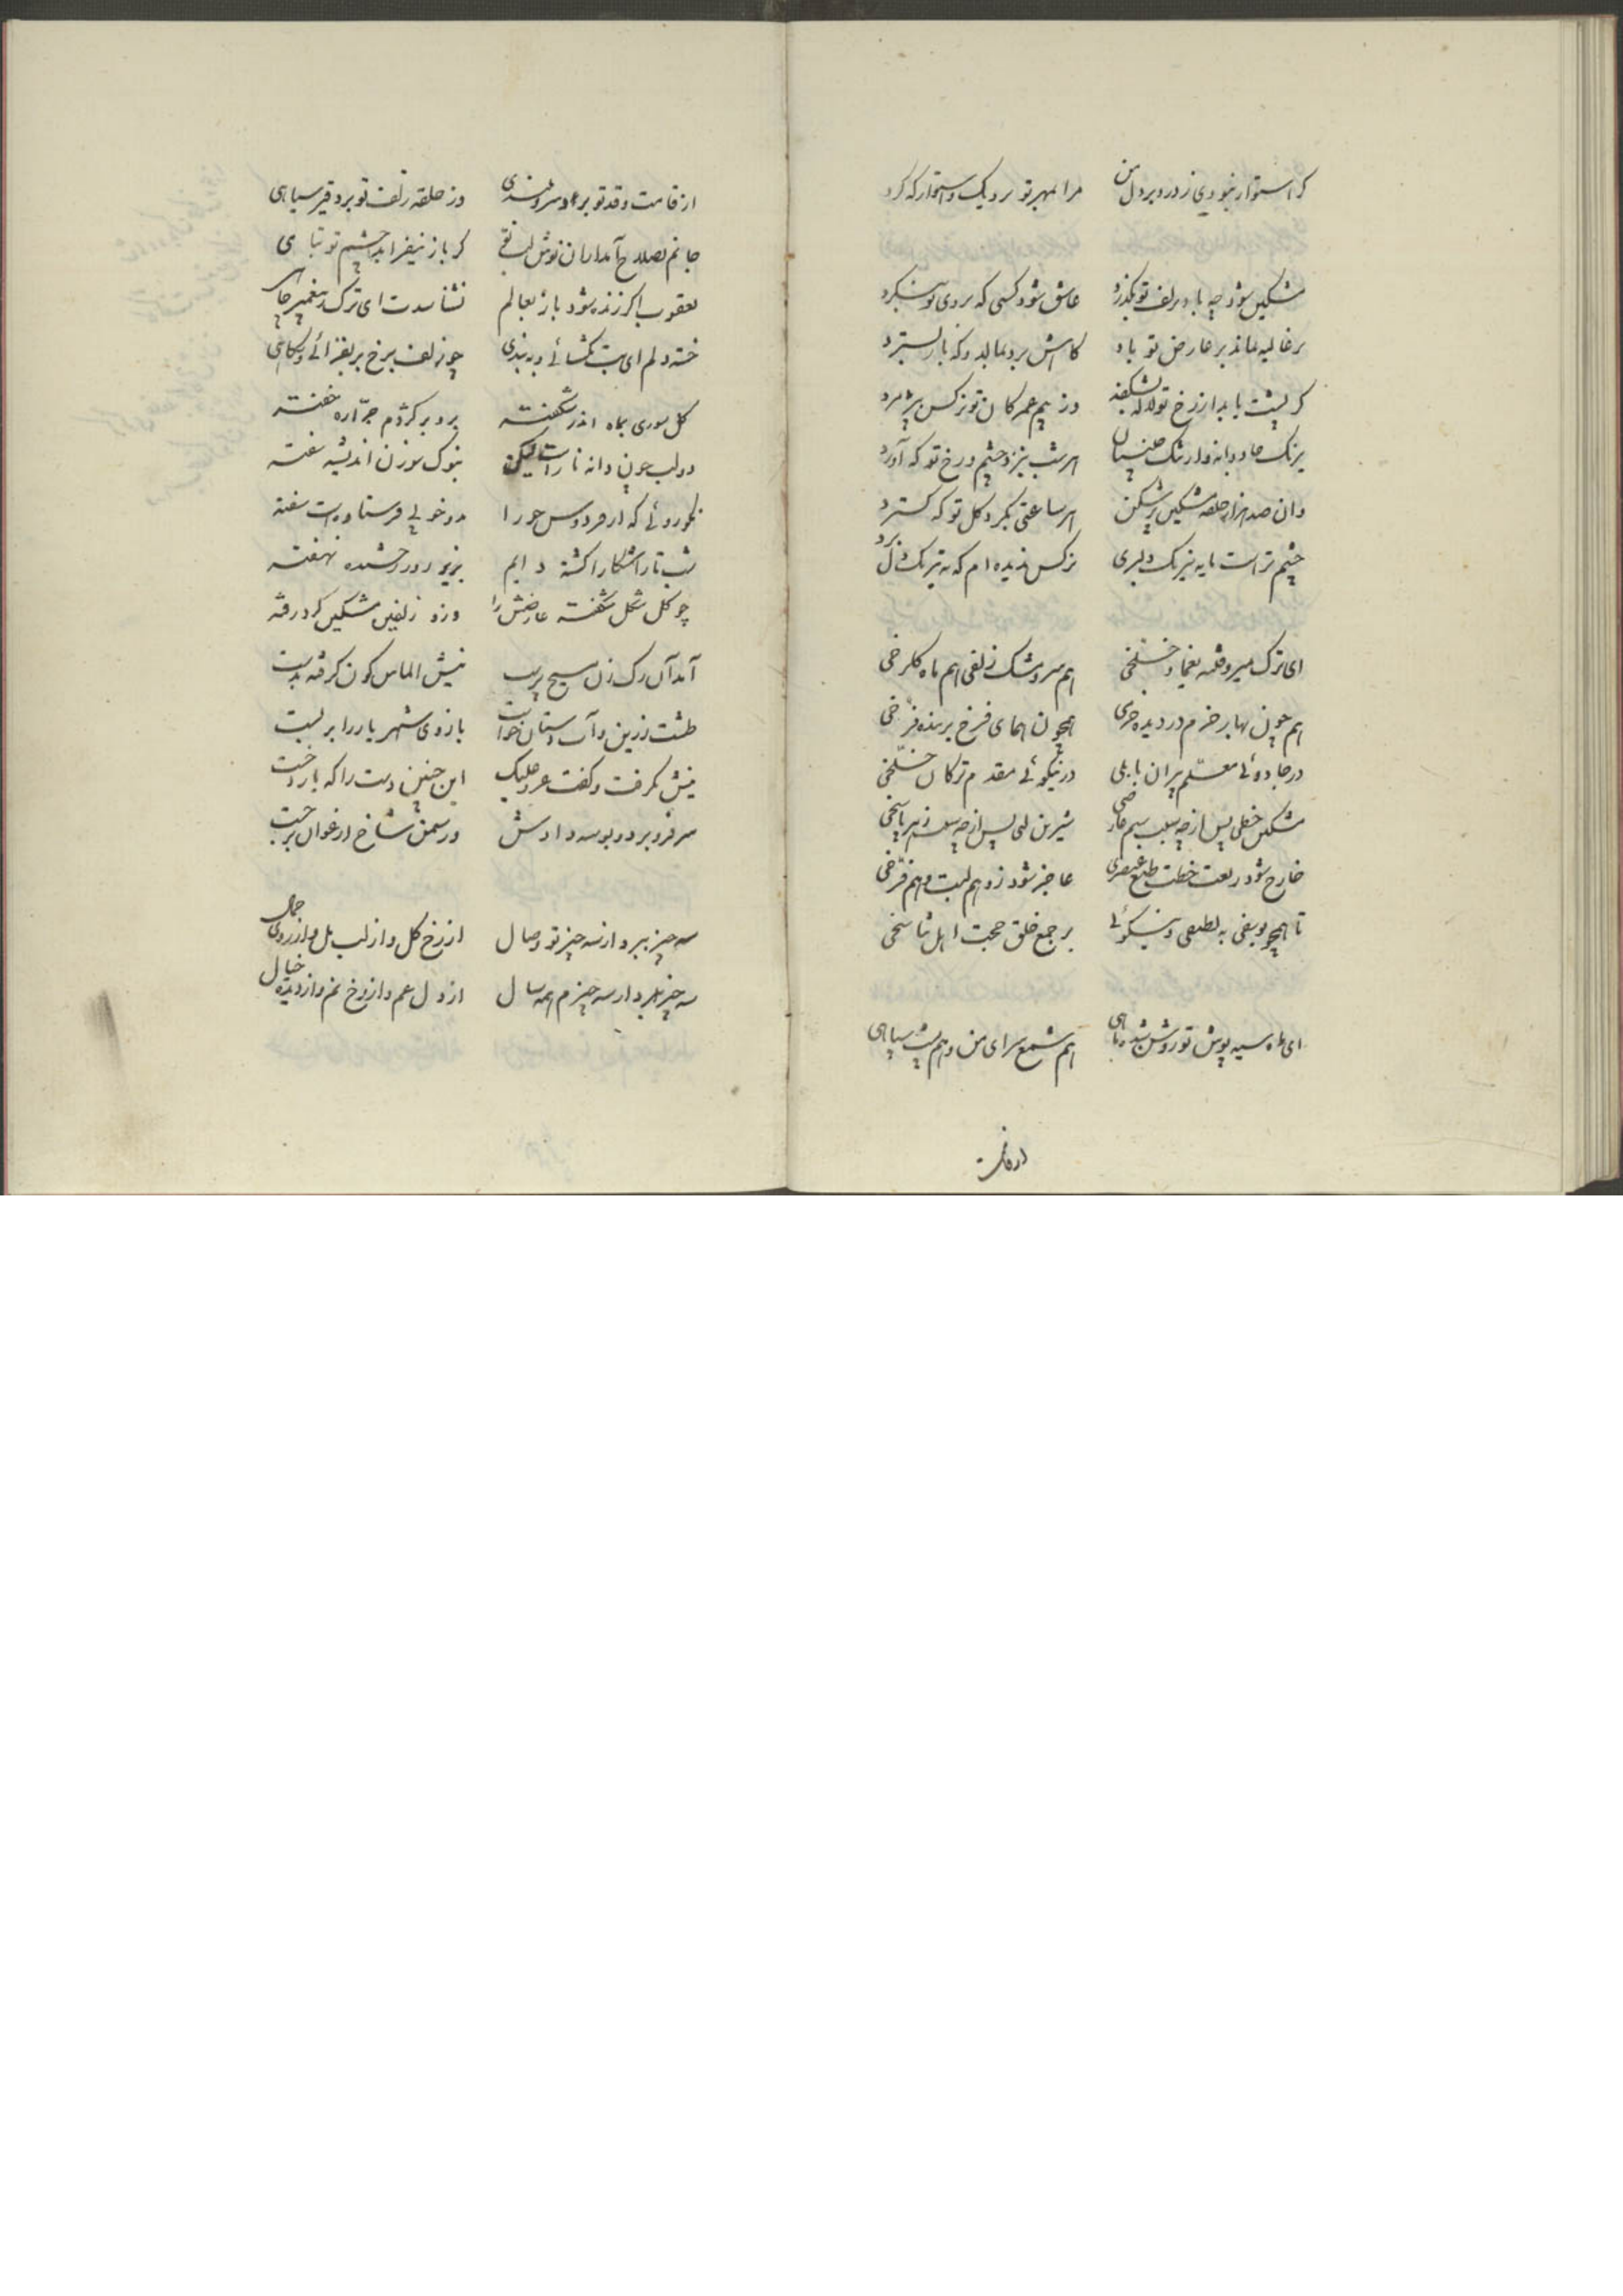 کر استوار نبودی ز در و بر دل من مرا بمهر تو نزدیک و استوار که کرد
مشکین شود چه باد بزلف تو بگذرد عاشق شود کسی که بروی تو بنگرد
بر غالیه بماند بر عارض تو باد کاهش برو بمالد و که باز بسترد
ور بیم تو نرکس پژمرد
هر شب بنزد چشم و رخ تو که آورد
وان صد هزار حلقه مشکین پرشکن هر ساعتی بکرد کل تو که کسترد
چشم تراست مایه نیرنک و دلبری نرکس ندیده ام که به نیرنک دل برد
ای ترک میر و فتنه یغما و خلخی هم سرو مشک زلفی هم ماه کلرخی
هم چون بهار خرم در دیده خرمی همچون همای فرخ برنده فرخی
در جادوئی معلم پیران بابلی در نیکوئی مقدم ترکان خلخی
مشکین خطی پس از چه سبب سیم عارضی شیرین لبی پس از چه سبب زهر پاسخی
خارج شود ز نعت خطت طبع عنصری عاجز شود ز وهم لبت وهم فرخی
تا همچو یوسفی به لطیفی و نیکوئی بر جمع خلق حجت اهل تناسخی
ای ماه سیه پوش تو روشن شده ماهی هم شمع سرای من و هم پشت سپاهی
از قامت
از قامت و قد تو برد سرو بلندی وز حلقه زلف تو برد قیر سیاهی
جانم بصلاح آمد از ان نوش لب تو کر باز نیفزاید چشم تو تباهی
یعقوب اکر زنده شود باز بعالم نشناسدت ای ترک ز پیغمبر چاهی
خسته دلم ای بت بکشائی و ببندی چو زلف برخ بر بفزائی و بکاهی
کل سوری بماه اندر شکفته برو بر کژدم جراره خفته
دو لب چون دانه نار است لیکن بنوک سوزن اندیشه سفته
نکوروئی که از فردوس حور را بدو خوبی فرستاده است سفته
شب تار آشکارا کشته دایم بزیر روز رخشنده نهفته
چو کل شکل شکفته عارضش را وزو زلفین مشکین کرد رفته
آمد آن رک زن مسیح پرست نیش الماس کون کرفته بدست
طشت زرین و آب دستان خواست بازوی شهریار را بربست
نیش بکرفت و کفت عز علیک این چنین دست را که یارد خست
سر فرو برد و بوسه دادش وز سمن شاخ ارغوان برجست
سه چیز ببرد از سه چیز تو وصال از رخ کل و از لب مل و از روی جمال
سه چیز ببرد از سه چیزم همه سال از دل غم و از رخ نم و از دیده خیال